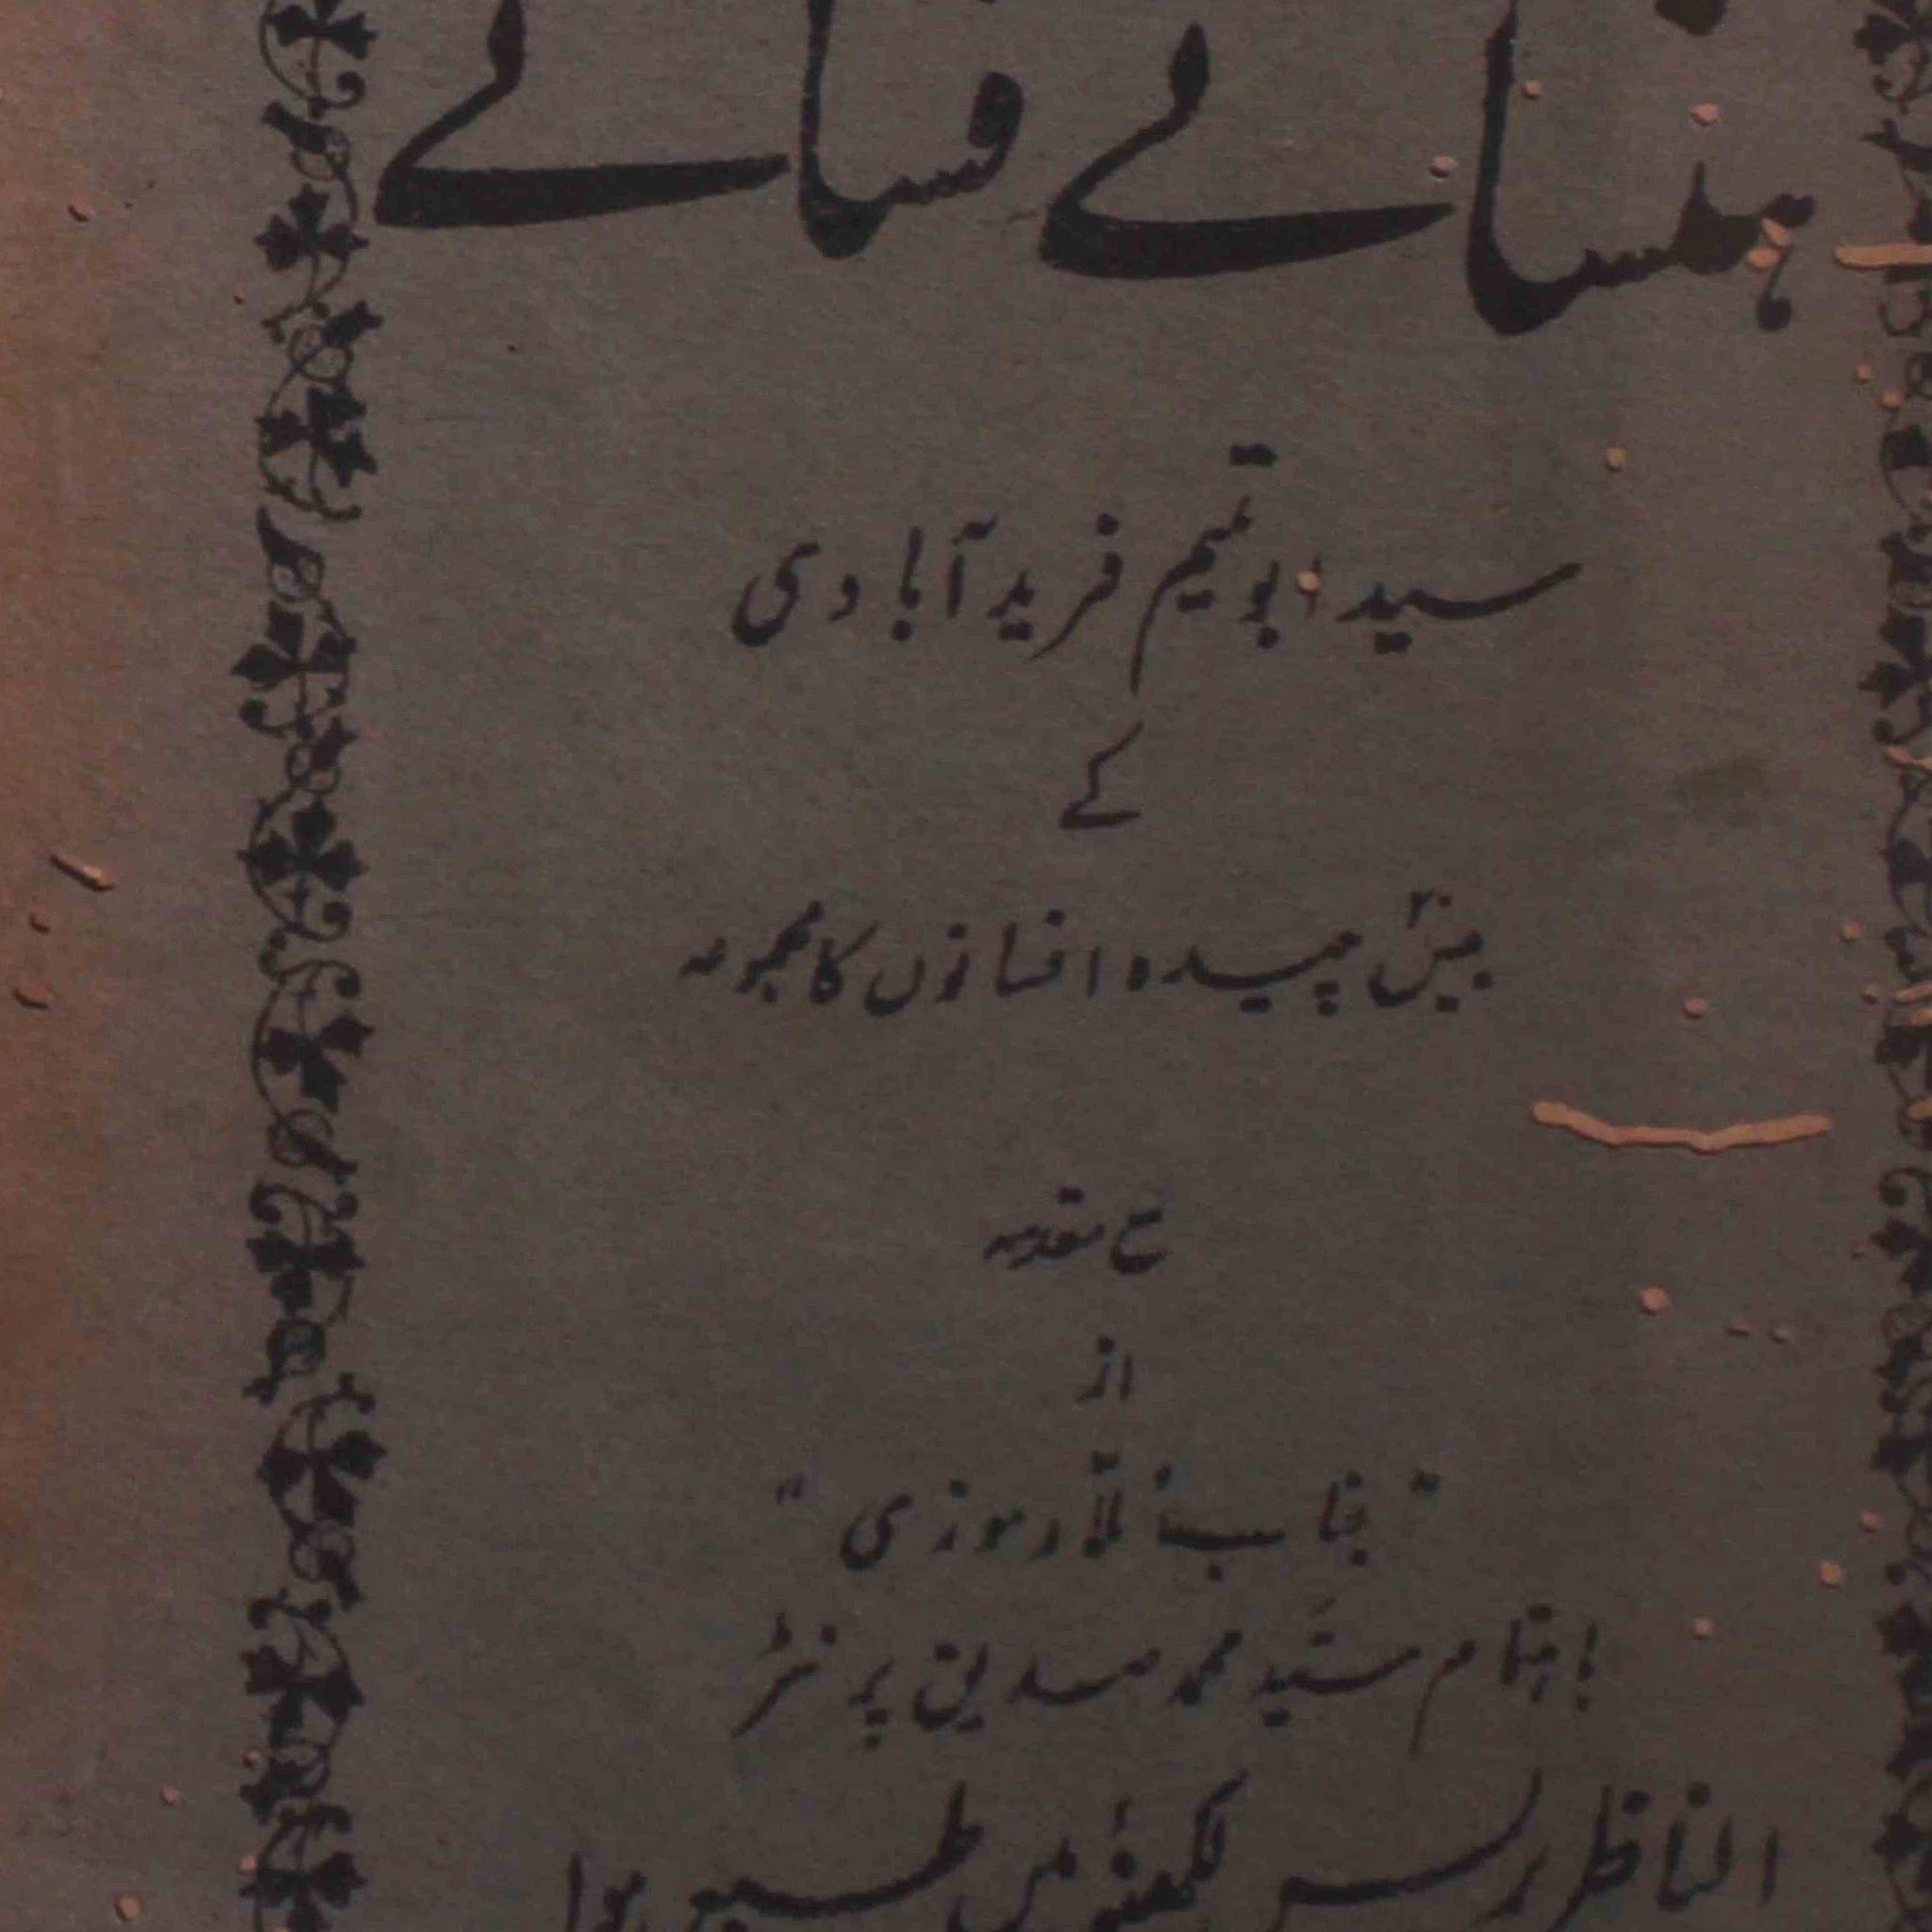 ہنسانے فسانے
سید ابو تمیم فرید آبادی
کے
بیس چیدہ افسانوں کا مجموعہ
مع مقدمہ
از
"جناب مُلّا رموزی"
باہتمام سَیّد محمد صدیق پرنٹر
الناظر پریس لکھنؤ میں طبع ہوا